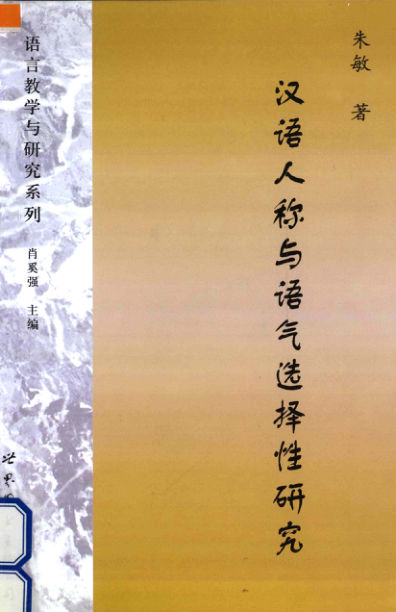 朱敏 著
汉语人称与语气选择性研究
语言教学与研究系列
肖奚强 主编
世界